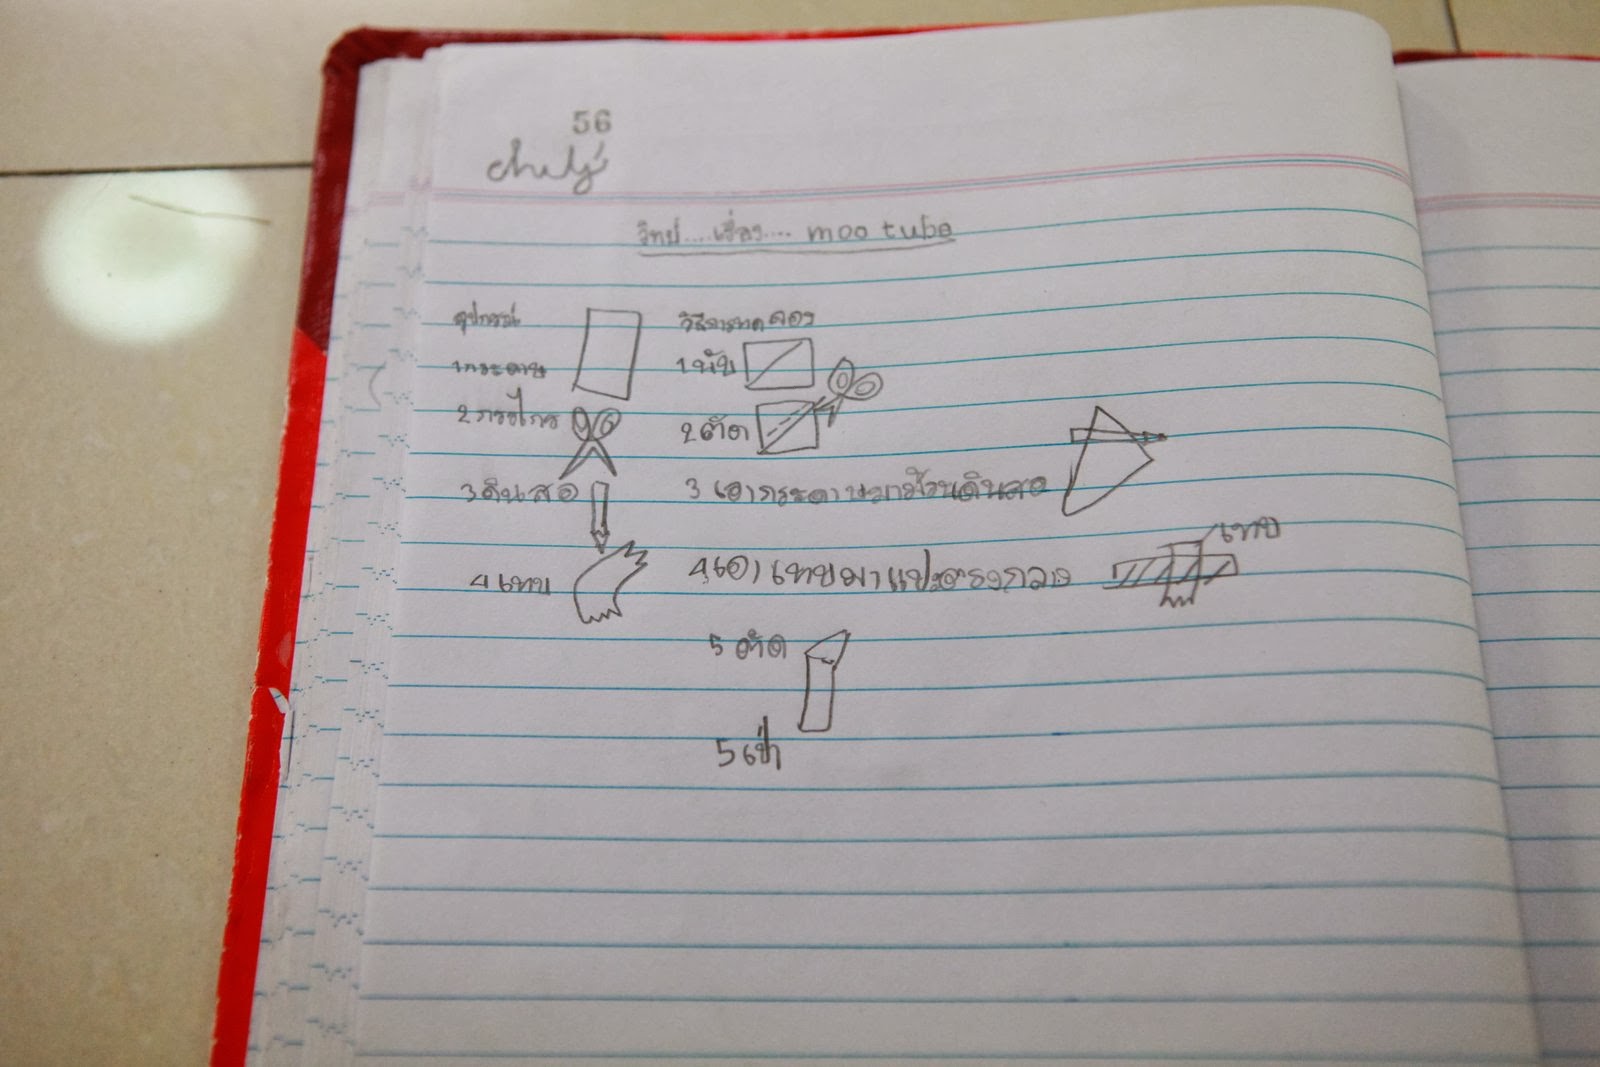 56
วิทย์....เรื่อง.... moo tube
อุปกรณ์
1กระดาษ
2กรรไกร
3ดินสอ
4เทป
วิธีการทดลอง
1พับ
2ตัด
3 เอากระดาษมาม้วนดินสอ
4เอาเทปมาแปะตรงกลาง
เทป
5 ตัด
5เป่า